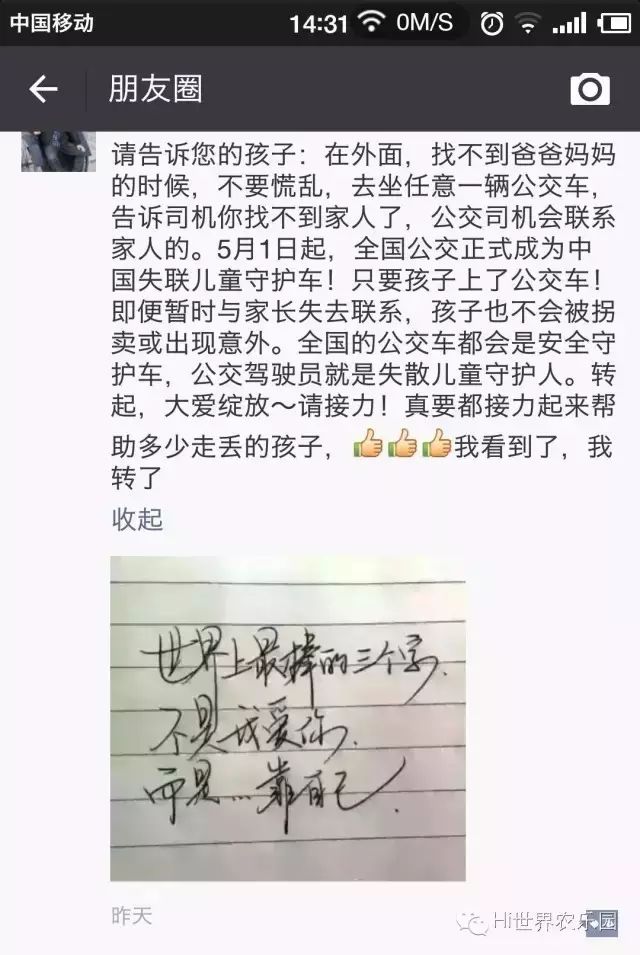 中国移动 14:31 0M/S
朋友圈
请告诉您的孩子：在外面，找不到爸爸妈妈
的时候，不要慌乱，去坐任意一辆公交车，
告诉司机你找不到家人了，公交司机会联系
家人的。5月1日起，全国公交正式成为中
国失联儿童守护车！只要孩子上了公交车！
即便暂时与家长失去联系，孩子也不会被拐
卖或出现意外。全国的公交车都会是安全守
护车，公交驾驶员就是失散儿童守护人。转
起，大爱绽放～请接力！真要都接力起来帮
助多少走丢的孩子，👍👍👍我看到了，我
转了
收起
世界上最棒的三个字.
不是我爱你.
而是...靠自己.
昨天
Hi世界农乐园